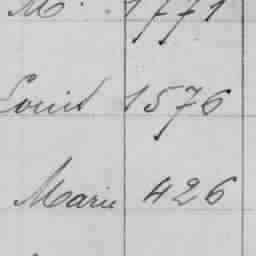 M. 1771
Louis 1576
Marie 426